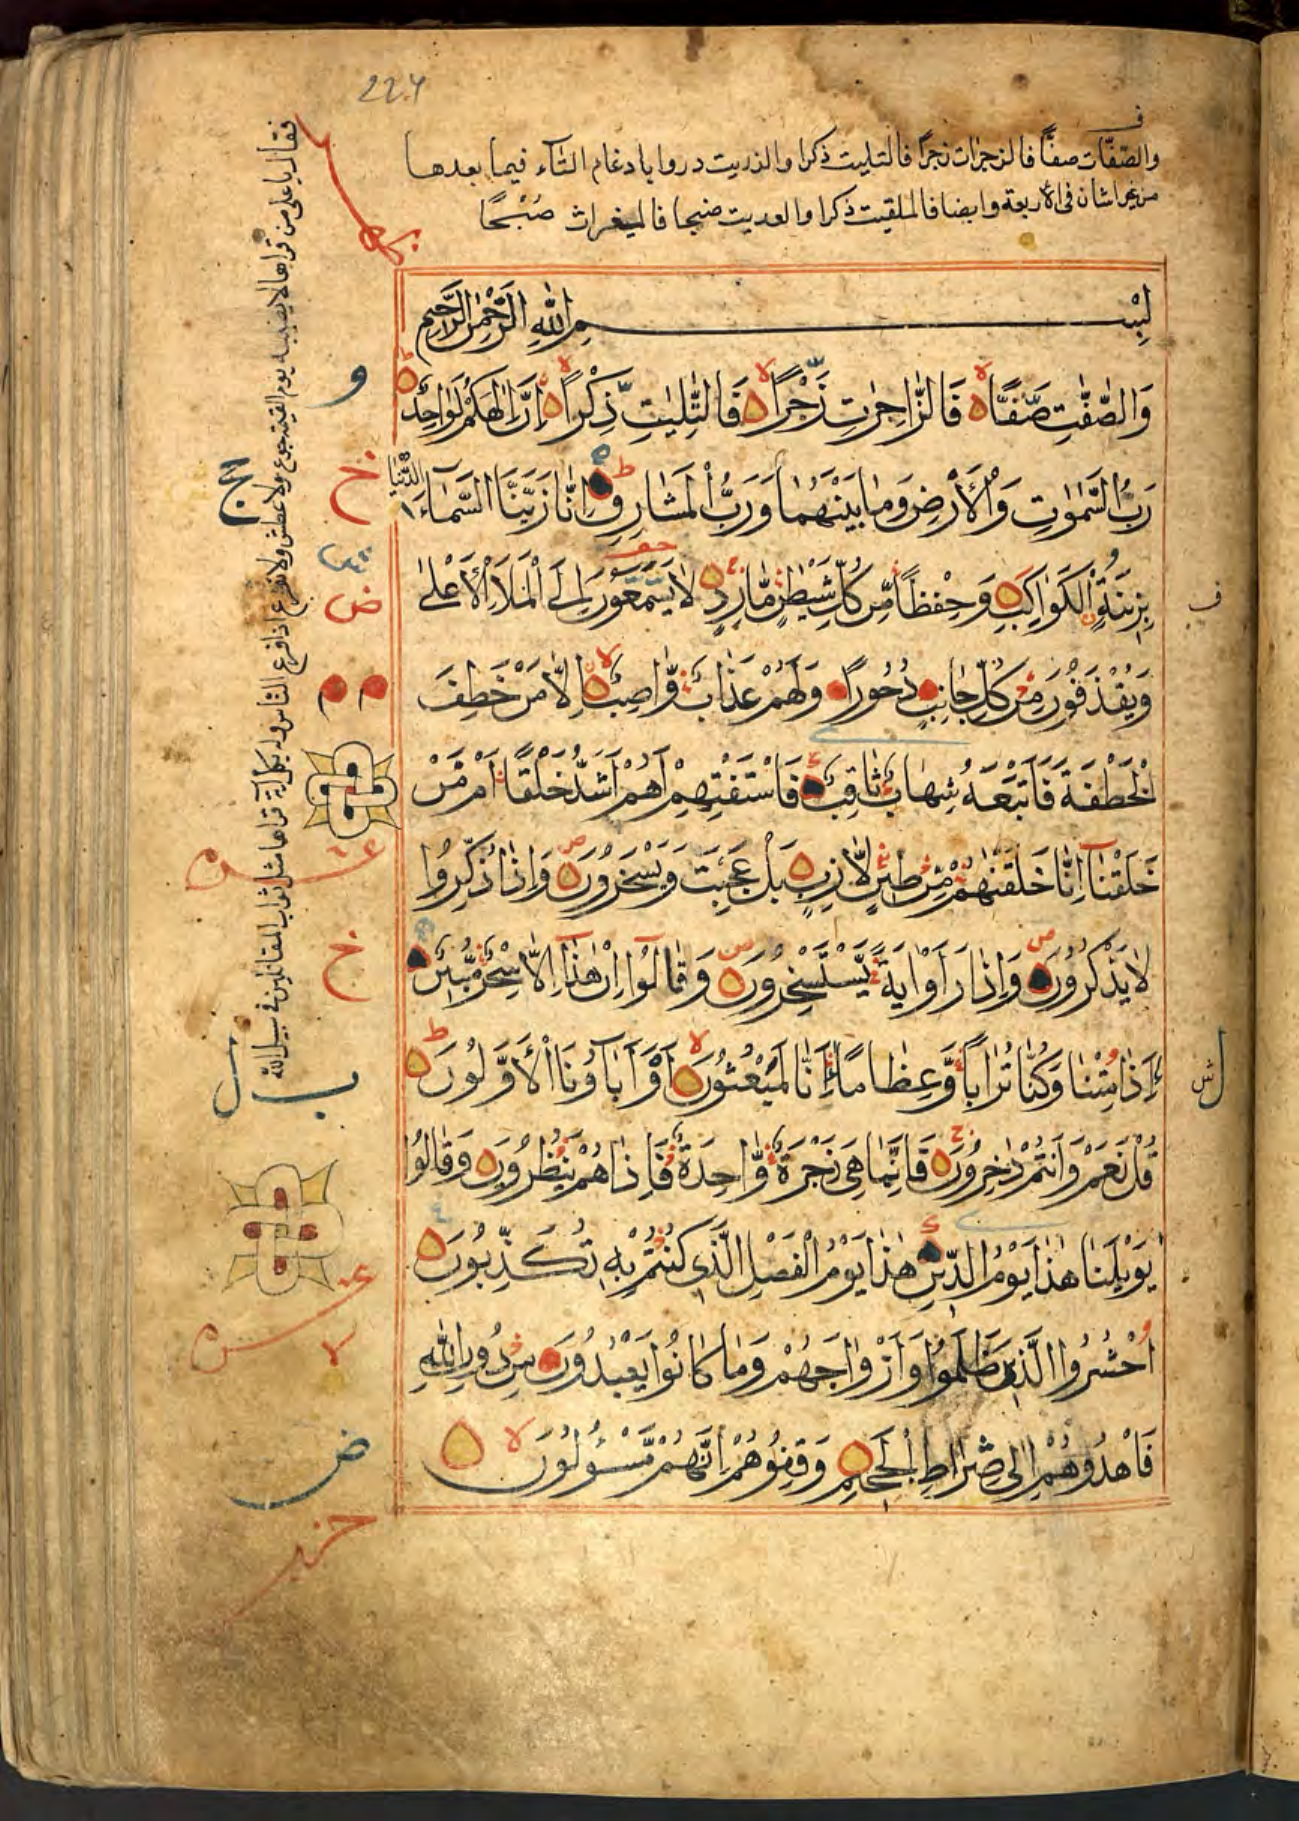 224
والصّفّات صفًّا فالزجرات زجرًا فالتليت ذكرا والذريت دروا بادغام التّاء فيما بعدها
من غير اشان فى الأربعة وايضا فالملقيت ذكرا والعديت ضبحا فالمغيرات صُبْحًا
بِسْــــمِ اللّٰهِ الرَّحْمٰنِ الرَّحِيمِ
وَالصّٰٓفّٰتِ صَفًّا فَالزّٰاجِرٰتِ زَجْرًا فَالتّٰلِيٰتِ ذِكْرًا اِنَّ اِلٰهَكُمْ لَوٰاحِدٌ
رَبُّ السَّمٰوٰتِ وَالْاَرْضِ وَمٰا بَيْنَهُمٰا وَرَبُّ الْمَشٰارِقِ اِنّٰا زَيَّنَّا السَّمٰٓاءَ الدُّنْيٰا
بِزِينَةٍ الْكَوٰاكِبِ وَحِفْظًا مِّن كُلِّ شَيْطٰنٍ مّٰارِدٍ لٰا يَسَّمَّعُونَ اِلَى الْمَلَاِ الْاَعْلٰى
وَيُقْذَفُونَ مِن كُلِّ جٰانِبٍ دُحُورًا وَلَهُمْ عَذٰابٌ وّٰاصِبٌ اِلّٰا مَنْ خَطِفَ
الْخَطْفَةَ فَاَتْبَعَهُ شِهٰابٌ ثٰاقِبٌ فَاسْتَفْتِهِمْ اَهُمْ اَشَدُّ خَلْقًا اَمْ مَّنْ
خَلَقْنٰٓا اِنّٰا خَلَقْنٰهُمْ مِّن طِينٍ لّٰازِبٍ بَلْ عَجِبْتَ وَيَسْخَرُونَ وَاِذٰا ذُكِّرُوا
لٰا يَذْكُرُونَ وَاِذٰا رَاَوْا اٰيَةً يَّسْتَسْخِرُونَ وَقٰالُوٓا اِنْ هٰذٰٓا اِلّٰا سِحْرٌ مُّبِينٌ
ءَاِذٰا مِتْنٰا وَكُنّٰا تُرٰابًا وَّعِظٰامًا ءَاِنّٰا لَمَبْعُوثُونَ اَوَ اٰبٰٓاؤُنَا الْاَوَّلُونَ
قُلْ نَعَمْ وَاَنْتُمْ دٰخِرُونَ فَاِنَّمٰا هِىَ زَجْرَةٌ وّٰاحِدَةٌ فَاِذٰا هُمْ يَنْظُرُونَ وَقٰالُوا
يٰوَيْلَنٰا هٰذٰا يَوْمُ الدِّينِ هٰذٰا يَوْمُ الْفَصْلِ الَّذِى كُنْتُمْ بِهِ تُكَذِّبُونَ
اُحْشُرُوا الَّذِينَ ظَلَمُوا وَاَزْوٰاجَهُمْ وَمٰا كٰانُوا يَعْبُدُونَ مِن دُونِ اللّٰهِ
فَاهْدُوهُمْ اِلٰى صِرٰاطِ الْجَحِيمِ وَقِفُوهُمْ اِنَّهُمْ مَّسْـُٔولُونَ
فقال يا على من قراها لا يصيبه يوم القيمة جوع ولا عطش ولا يفزع اذا فزع النّاس وله بكل اية قراها مثل ثواب المقاتلين فى سبيل الله